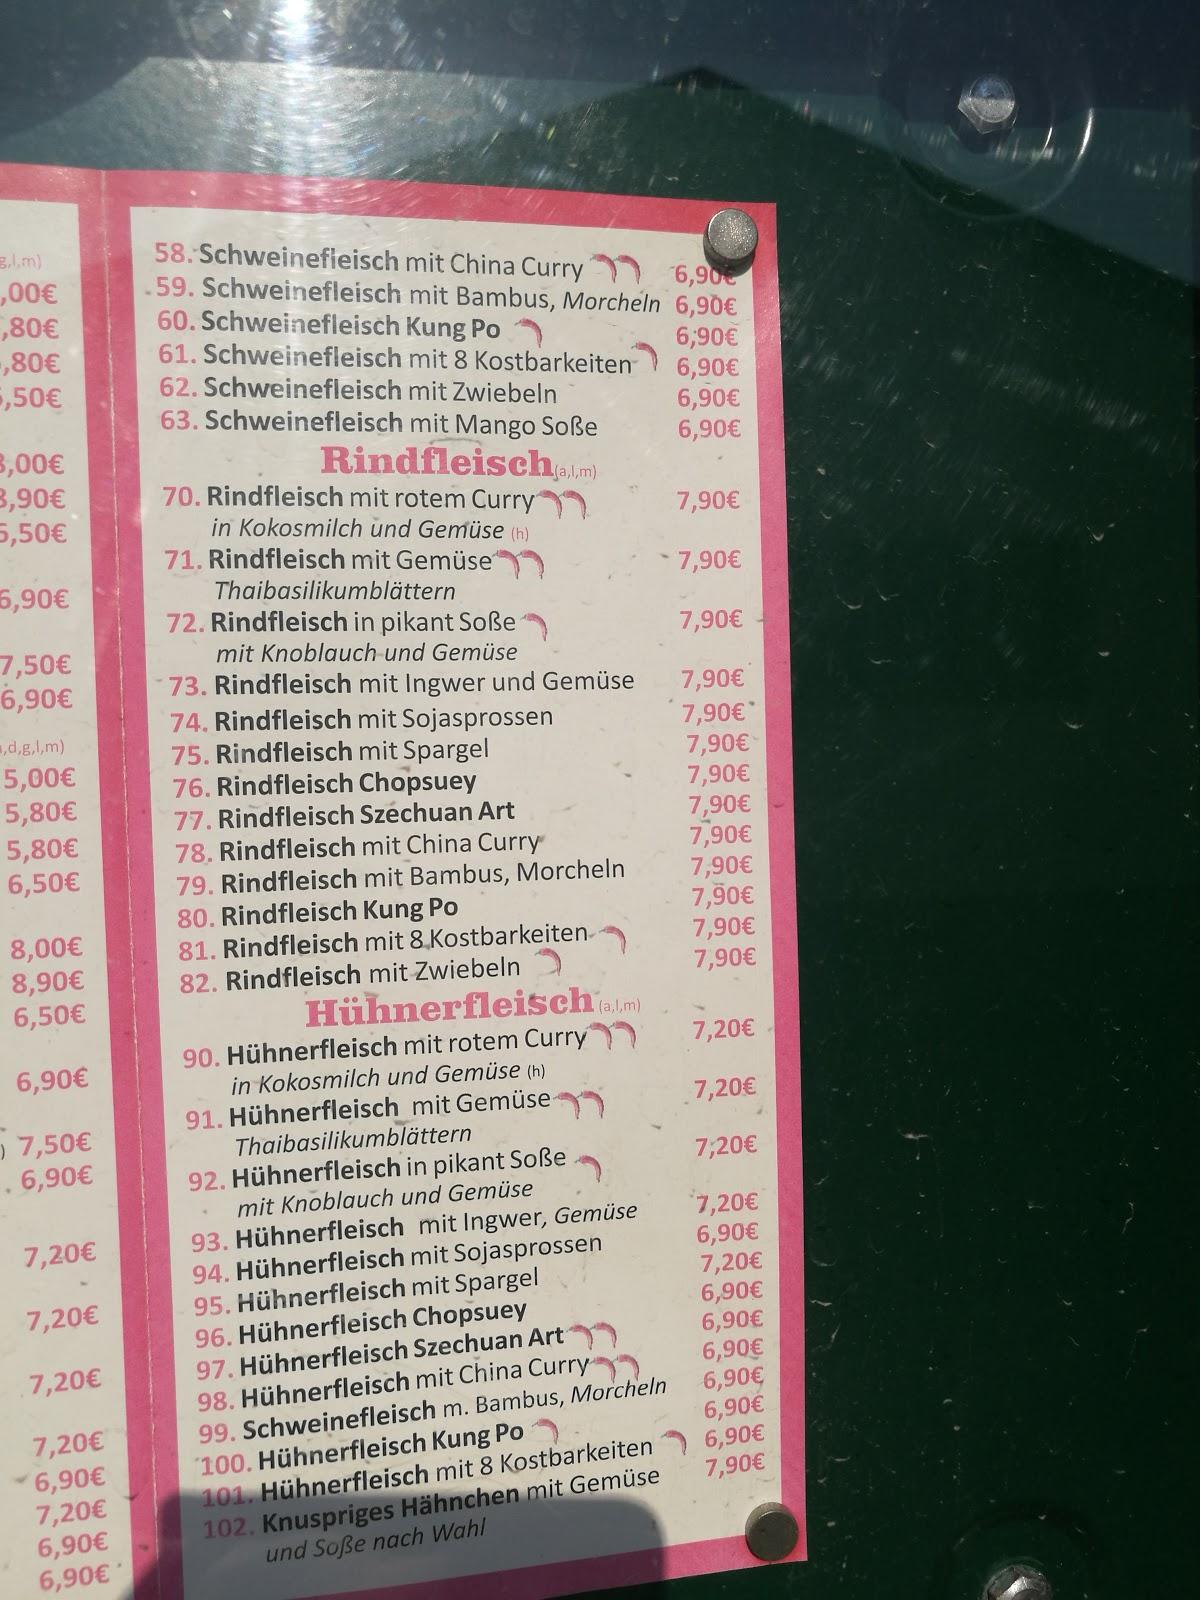 g,l,m)
,00€
,80€
,80€
,50€
,00€
8,90€
6,50€
6,90€
7,50€
6,90€
,d,g,l,m)
5,00€
5,80€
5,80€
6,50€
8,00€
8,90€
6,50€
6,90€
) 7,50€
6,90€
7,20€
7,20€
7,20€
7,20€
6,90€
7,20€
6,90€
6,90€
58. Schweinefleisch mit China Curry 6,90€
59. Schweinefleisch mit Bambus, Morcheln 6,90€
60. Schweinefleisch Kung Po 6,90€
61. Schweinefleisch mit 8 Kostbarkeiten 6,90€
62. Schweinefleisch mit Zwiebeln 6,90€
63. Schweinefleisch mit Mango Soße 6,90€
Rindfleisch (a,l,m)
70. Rindfleisch mit rotem Curry 7,90€
in Kokosmilch und Gemüse (h)
71. Rindfleisch mit Gemüse 7,90€
Thaibasilikumblättern
72. Rindfleisch in pikant Soße 7,90€
mit Knoblauch und Gemüse
73. Rindfleisch mit Ingwer und Gemüse 7,90€
74. Rindfleisch mit Sojasprossen 7,90€
75. Rindfleisch mit Spargel 7,90€
76. Rindfleisch Chopsuey 7,90€
77. Rindfleisch Szechuan Art 7,90€
78. Rindfleisch mit China Curry 7,90€
79. Rindfleisch mit Bambus, Morcheln 7,90€
80. Rindfleisch Kung Po 7,90€
81. Rindfleisch mit 8 Kostbarkeiten 7,90€
82. Rindfleisch mit Zwiebeln 7,90€
Hühnerfleisch (a,l,m)
90. Hühnerfleisch mit rotem Curry 7,20€
in Kokosmilch und Gemüse (h)
91. Hühnerfleisch mit Gemüse 7,20€
Thaibasilikumblättern
92. Hühnerfleisch in pikant Soße 7,20€
mit Knoblauch und Gemüse
93. Hühnerfleisch mit Ingwer, Gemüse 7,20€
94. Hühnerfleisch mit Sojasprossen 6,90€
95. Hühnerfleisch mit Spargel 7,20€
96. Hühnerfleisch Chopsuey 6,90€
97. Hühnerfleisch Szechuan Art 6,90€
98. Hühnerfleisch mit China Curry 6,90€
99. Schweinefleisch m. Bambus, Morcheln 6,90€
100. Hühnerfleisch Kung Po 6,90€
101. Hühnerfleisch mit 8 Kostbarkeiten 6,90€
102. Knuspriges Hähnchen mit Gemüse 7,90€
und Soße nach Wahl